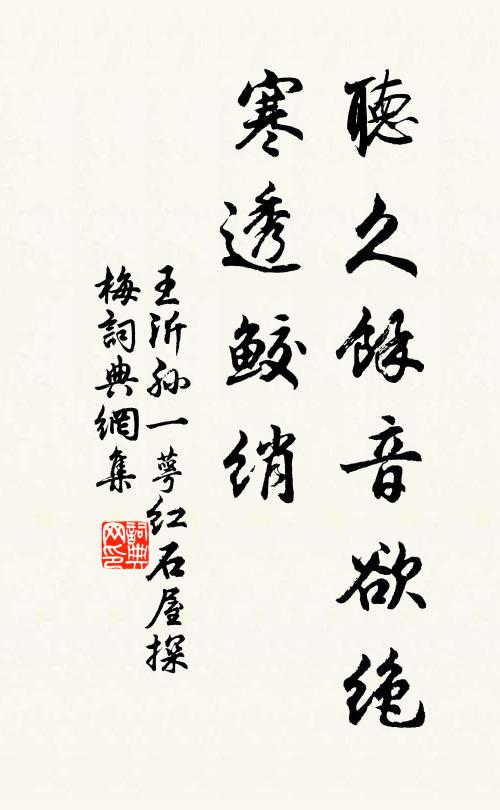 聽久餘音欲絶
寒透鮫綃
王沂孫一萼紅石屋探
梅詞典網集
詞典
网印